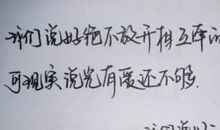 我们说好绝不放开相互牵的
可现实说光有爱还不够